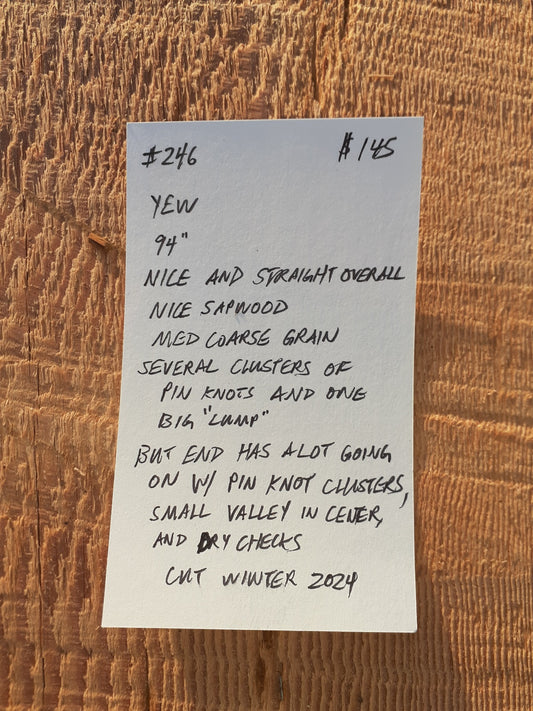 #246 $145
YEW
94"
NICE AND STRAIGHT OVERALL
NICE SAPWOOD
MED COARSE GRAIN
SEVERAL CLUSTERS OF
PIN KNOTS AND ONE
BIG "LUMP"
BUT END HAS A LOT GOING
ON W/ PIN KNOT CLUSTERS,
SMALL VALLEY IN CENER,
AND DRY CHECKS
CUT WINTER 2024